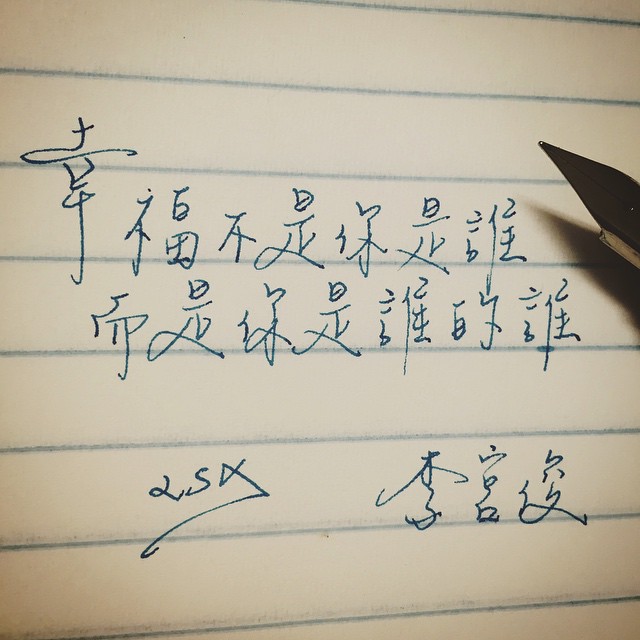 幸福不是你是誰
而是你是誰的誰
李宮俊